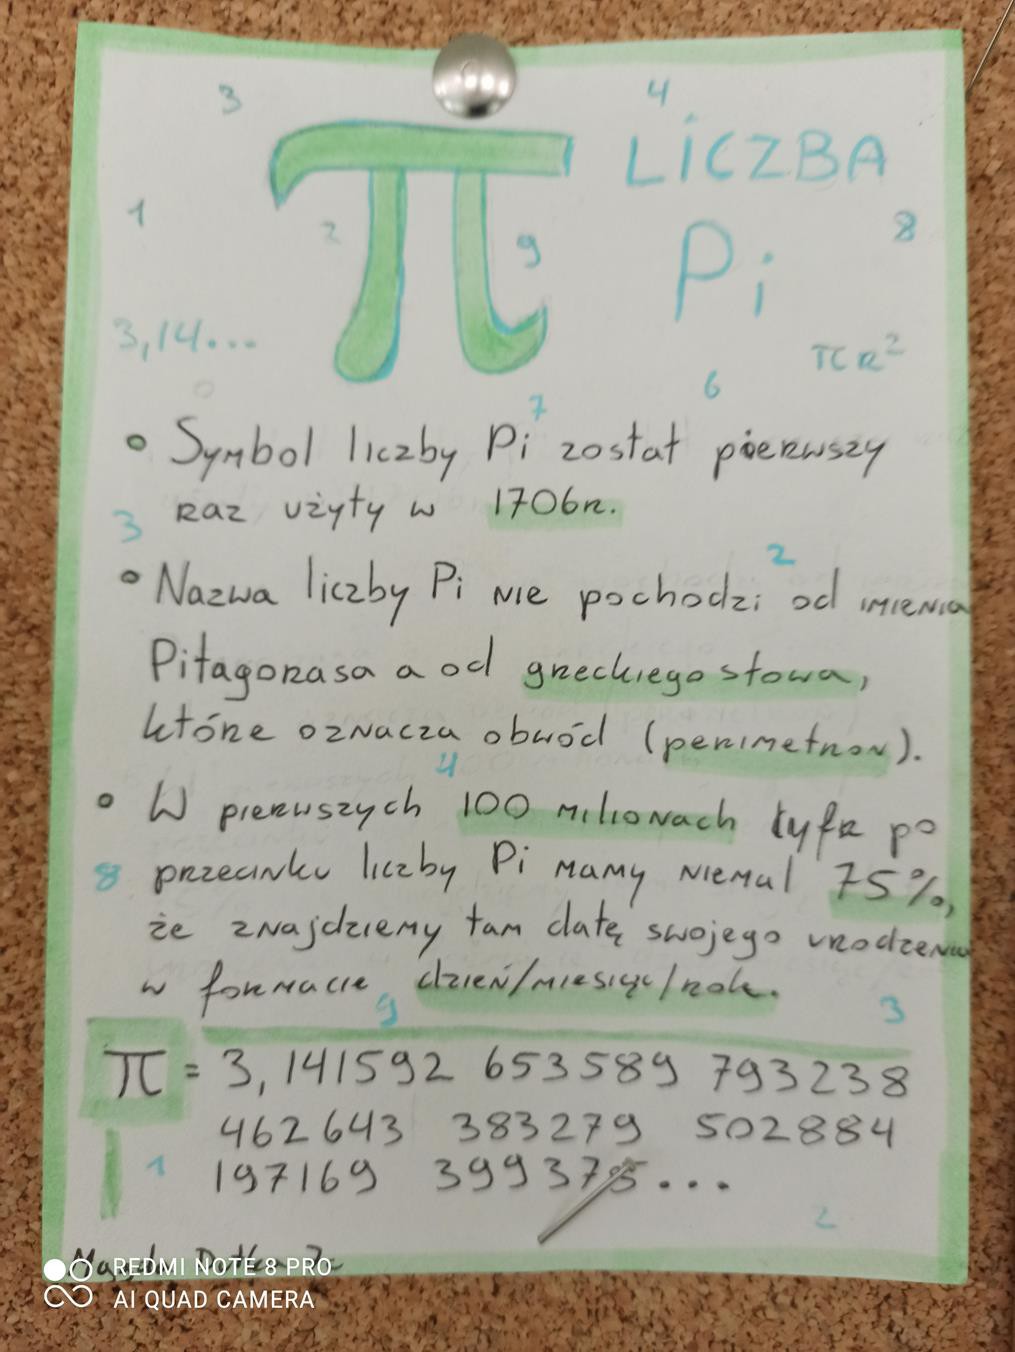 3
4
π LiCZBA
1
2
9
8
Pi
3,14...
πR²
6
7
• Symbol liczby Pi został pierwszy
raz użyty w 1706r.
3
2
• Nazwa liczby Pi nie pochodzi od imienia
Pitagorasa a od greckiego słowa,
które oznacza obwód (perimetron).
4
• W pierwszych 100 milionach cyfr po
8
przecinku liczby Pi mamy niemal 75%,
że znajdziemy tam datę swojego urodzenia
w formacie dzień/miesiąc/rok.
9
3
π = 3,141592 653589 793238
462643 383279 502884
1
197169 399375...
2
REDMI NOTE 8 PRO
AI QUAD CAMERA